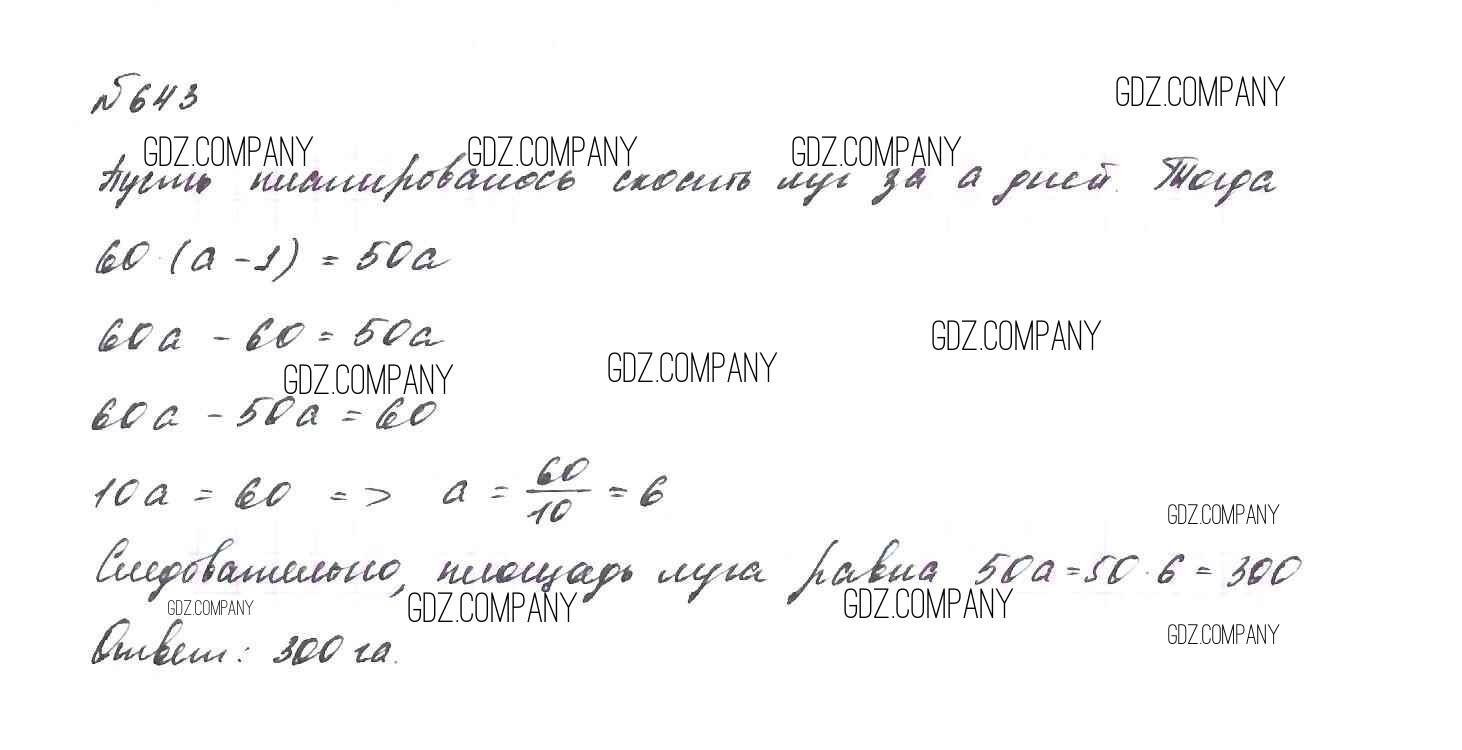 №643
GDZ.COMPANY
GDZ.COMPANY GDZ.COMPANY GDZ.COMPANY
Пусть планировалось скосить луг за a дней. Тогда
60·(a - 1) = 50a
60a - 60 = 50a
GDZ.COMPANY
GDZ.COMPANY GDZ.COMPANY
60a - 50a = 60
10a = 60 => a = 60/10 = 6
GDZ.COMPANY
Следовательно, площадь луга равна 50a = 50·6 = 300
GDZ.COMPANY GDZ.COMPANY GDZ.COMPANY
GDZ.COMPANY
Ответ: 300 га.